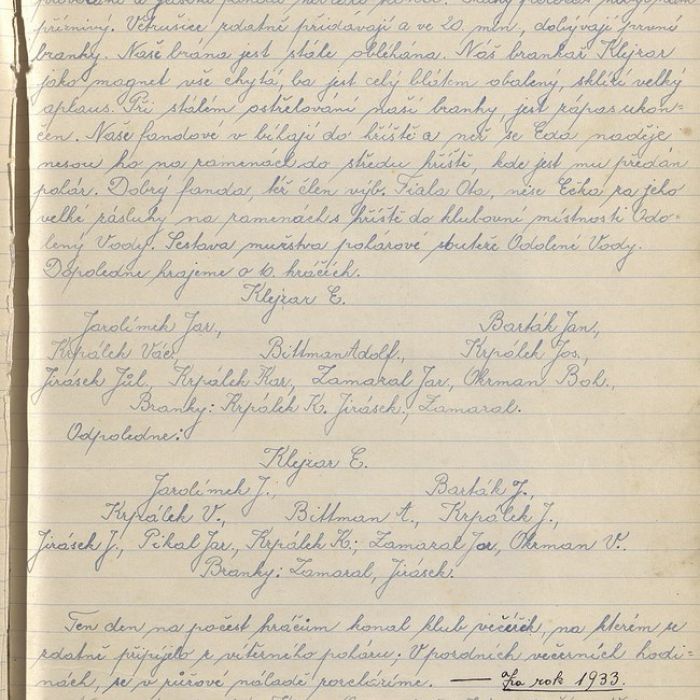 přízniný. Větrušice rdatně přidávají a ve 20 min, dobývají první
branky. Naše brána jest stále obléhána. Náš brankař Klejzar
jako magnet vše chytá, ba jest celý blátem obalený, sklízí velký
aplaus. Při stálém ostřelování naší branky, jest zápas ukon-
čen. Naše fandové v bíhají do hříště a než se Eda naděje
nesou ho na ramenách do středu hříště, kde jest mu předán
pohár. Dobrý fanda, též člen výb. Fiala Ota, nese Ečka za jeho
velké zásluhy na ramenách s hříště do klubovní místnosti Odo-
lený Vody. Sestava mužstva pohárové soutěže Odolené Vody.
Dopoledne hrajeme o 10. hráčích.
Klejzar E.
Jarolímek Jar., Barták Jan,
Krpálek Vác., Bittman Adolf., Krpálek Jos.,
Jirásek Jůl., Krpálek Kar., Zamaral Jar., Okrman Boh.,
Branky: Krpálek K. Jirásek., Zamaral.
Odpoledne:
Klejzar E.
Jarolímek J., Barták J.,
Krpálek V., Bittman A., Krpálek J.,
Jirásek J., Pikal Jar., Krpálek K., Zamaral Jar., Okrman V.
Branky: Zamaral, Jirásek.
Ten den na počest hráčům konal klub večírek, na kterém se
zdatně připíjelo z vítězného poháru. V pozdních večerních hodi-
nách, se v růžové náladě rozcházíme. — Za rok 1933.